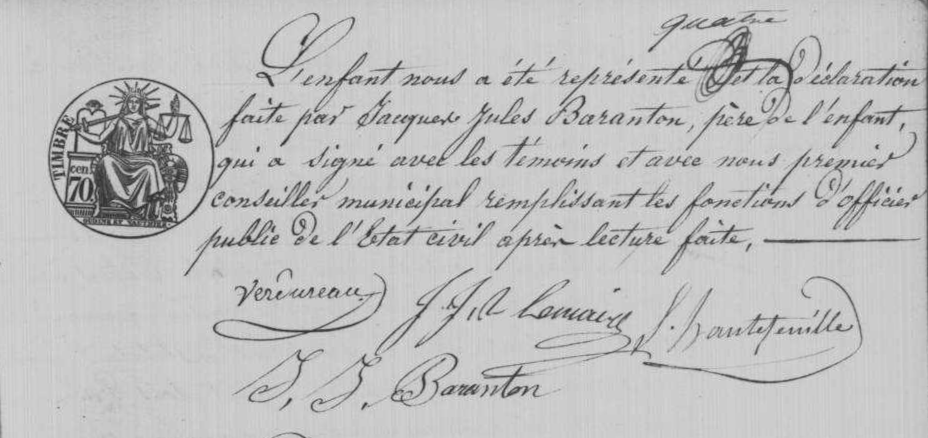 quatre
L'enfant nous a été représenté et la déclaration
faite par Jacques Jules Baranton, père de l'enfant,
qui a signé avec les témoins et avec nous premier
conseiller municipal remplissant les fonctions d'officier
public de l'Etat civil après lecture faite,
TIMBRE
cen
70.
Verdureau
J. J. A Lemaire
L. Hautefeuille
J. J. Baranton